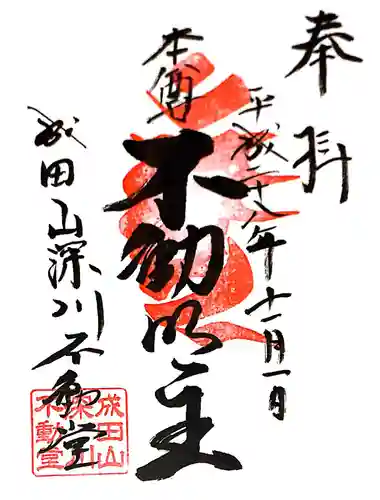 奉拝
平成二十八年十一月一日
本尊
不動明王
成田山深川不動堂
成田山
深川
不動堂